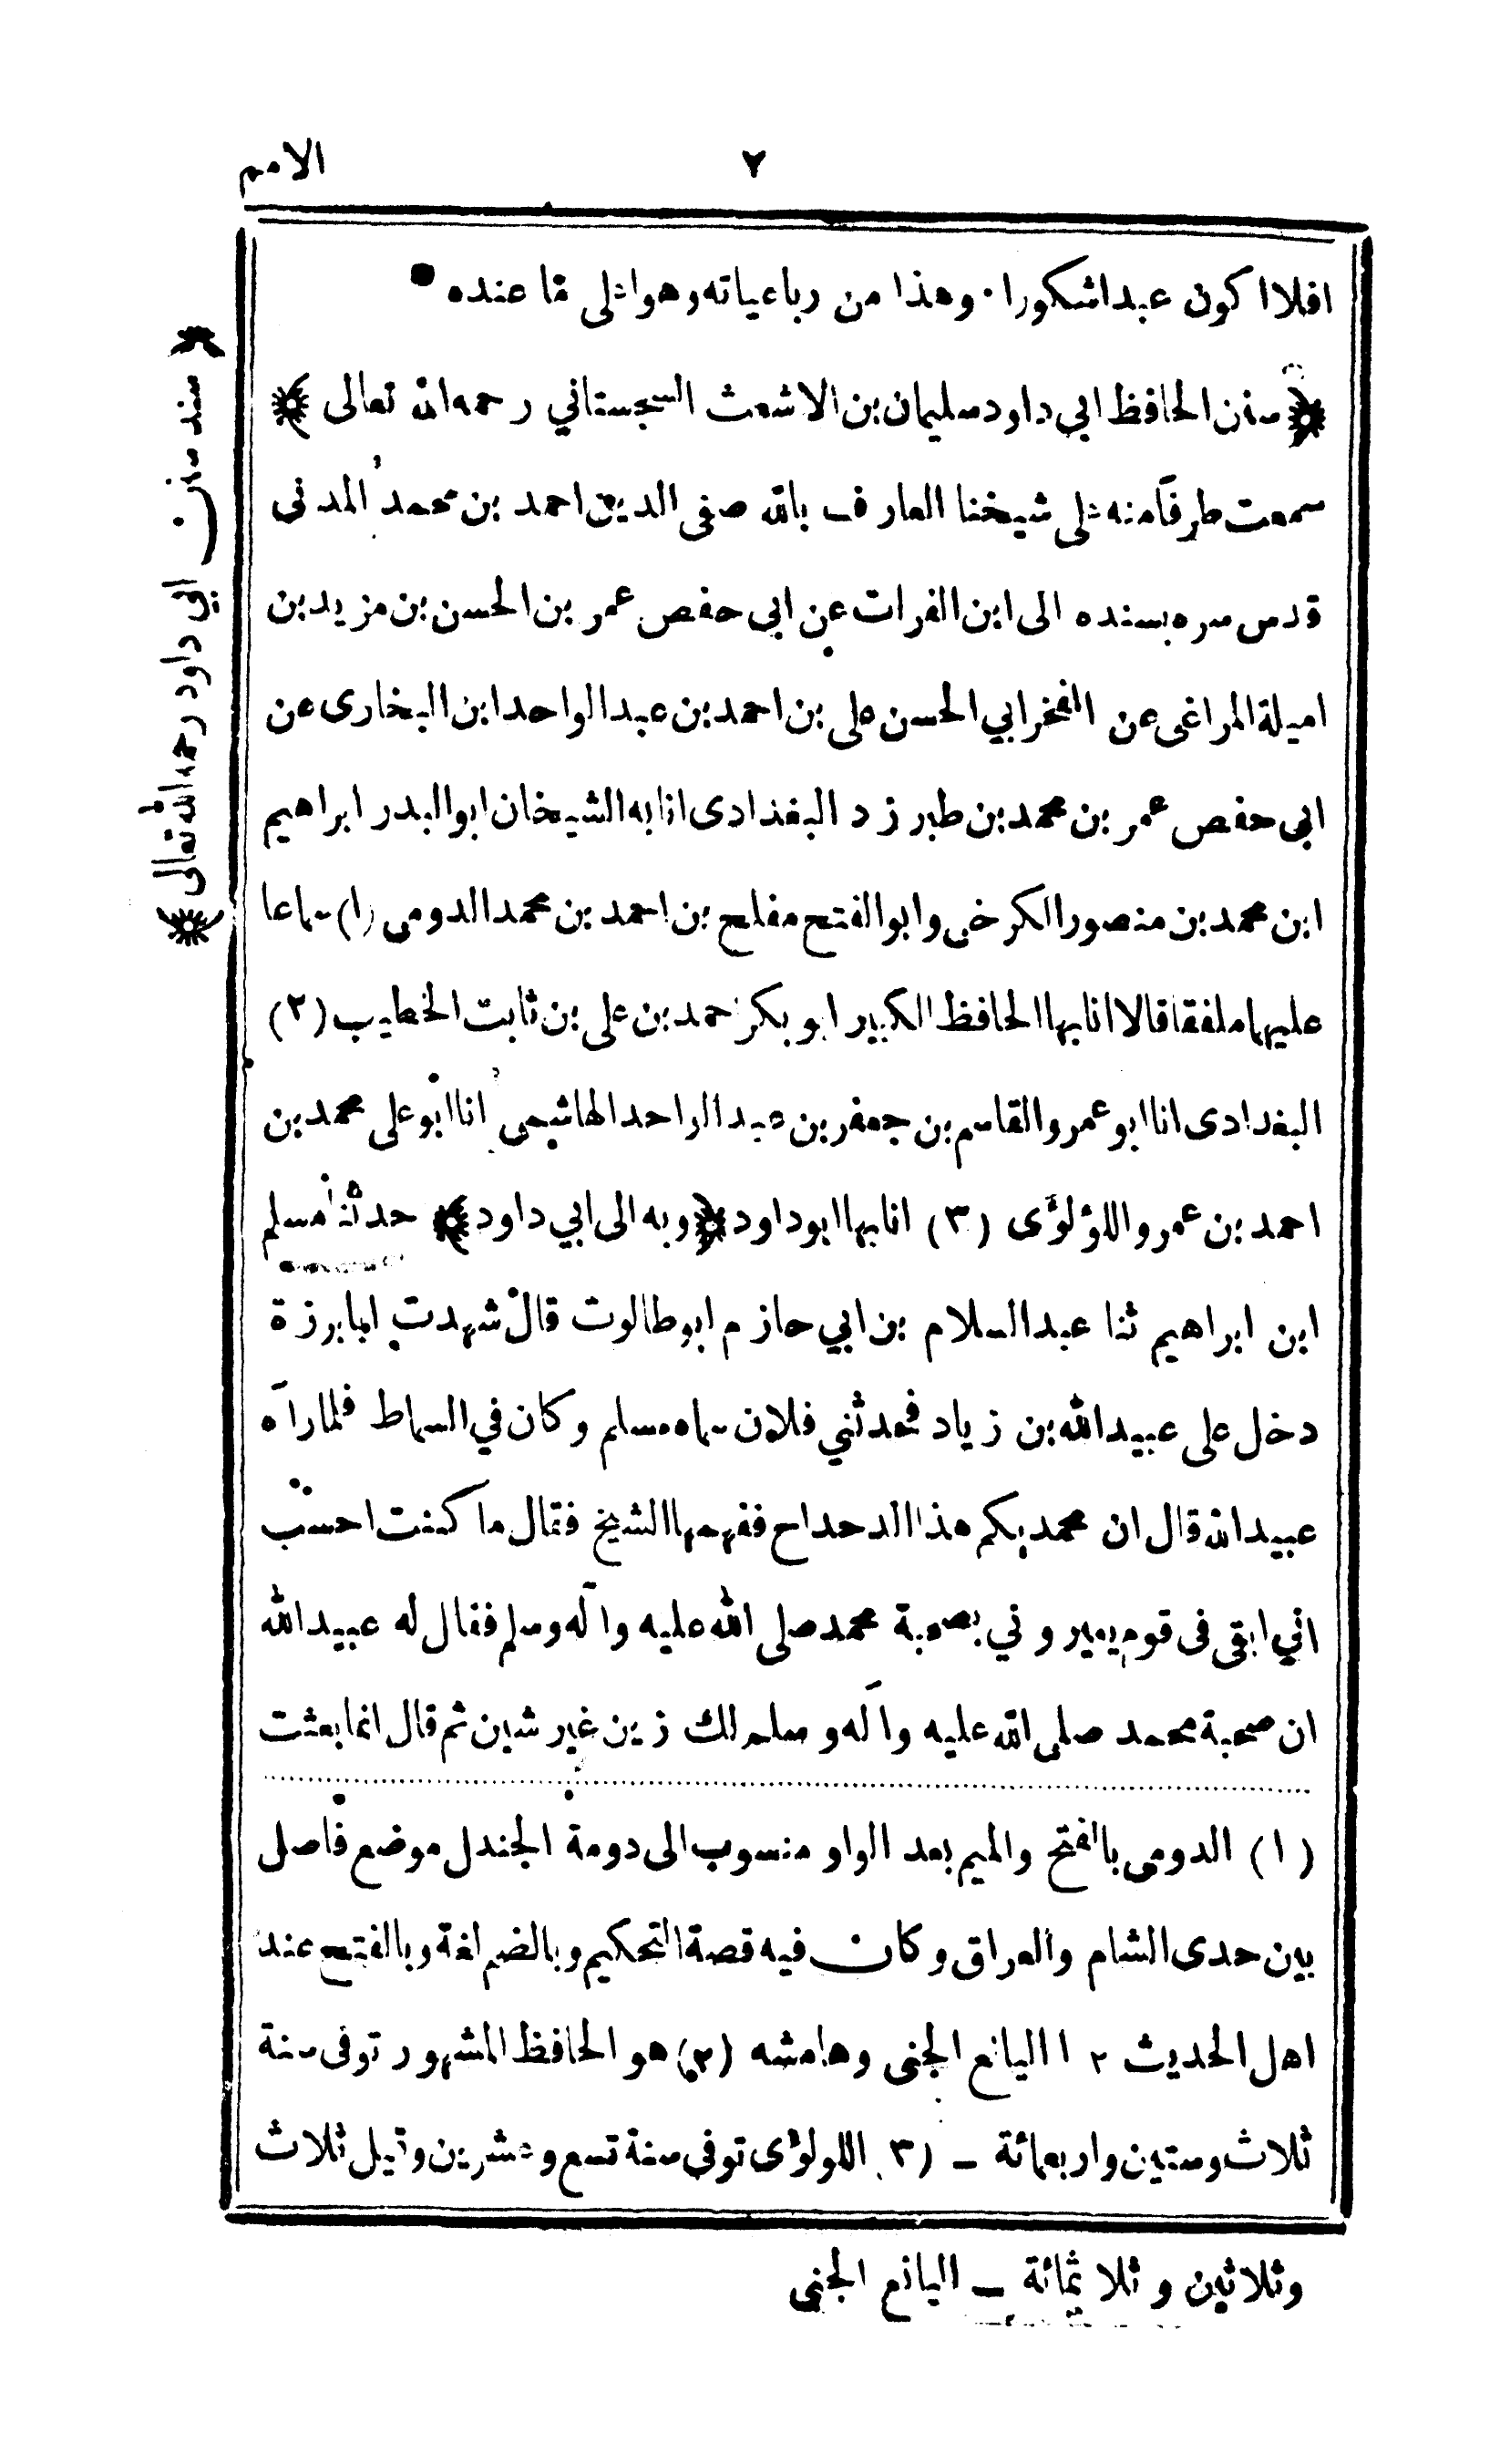 الامم
٧
افلا اكون عبدا شكورا. وهذا من رباعياته وهو اعلى ما عنده
﴿ سنن الحافظ ابي داود سليمان بن الاشعث السجستاني رحمه الله تعالى ﴾
سمعت طرفا منه على شيخنا العارف بالله صفي الدين احمد بن محمد المدني
قدس سره بسنده الى ابن الفرات عن ابي حفص عمر بن الحسن بن مزيد بن
اميلة المراغى عن الفخر ابي الحسن على بن احمد بن عبد الواحد ابن البخارى عن
ابى حفص عمر بن محمد بن طبرزد البغدادى انا به الشيخان ابو البدر ابراهيم
ابن محمد بن منصور الكرخى وابو الفتح مفلح بن احمد بن محمد الدومى (١) سماعا
عليهما ملفقا قالا انا بها الحافظ الكبير ابو بكر احمد بن على بن ثابت الخطيب (٢)
البغدادى انا ابو عمرو القاسم بن جعفر بن عبد الواحد الهاشمى انا ابو على محمد بن
احمد بن عمرو اللؤلؤى (٣) انا بها ابو داود ﴿ وبه الى ابي داود ﴾ حدثنا مسلم
ابن ابراهيم ثنا عبد السلام بن ابي حازم ابو طالوت قال شهدت ابا برزة
دخل على عبيد الله بن زياد فحدثني فلان سماه مسلم وكان في السماط فلما رآه
عبيد الله قال ان محمديكم هذا الدحداح ففهمها الشيخ فقال ما كنت احسب
اني ابقى فى قوم يعيروني بصحبة محمد صلى الله عليه وآله وسلم فقال له عبيد الله
ان صحبة محمد صلى الله عليه وآله وسلم لك زين غير شين ثم قال انما بعثت
(١) الدومى بالفتح والميم بعد الواو منسوب الى دومة الجندل موضع فاصل
بين حدى الشام والعراق وكان فيه قصة التحكيم وبالضم لغة وبالفتح عند
اهل الحديث ١٢ اليانع الجنى وهامشه (٢) هو الحافظ المشهور توفى سنة
ثلاث وستين واربعمائة ــ (٣) اللولؤى توفى سنة تسع وعشرين وقيل ثلاث
وثلاثين وثلاثمائة ــ اليانع الجنى
﴿ سند سنن ابي داود رحمه الله تعالى ﴾